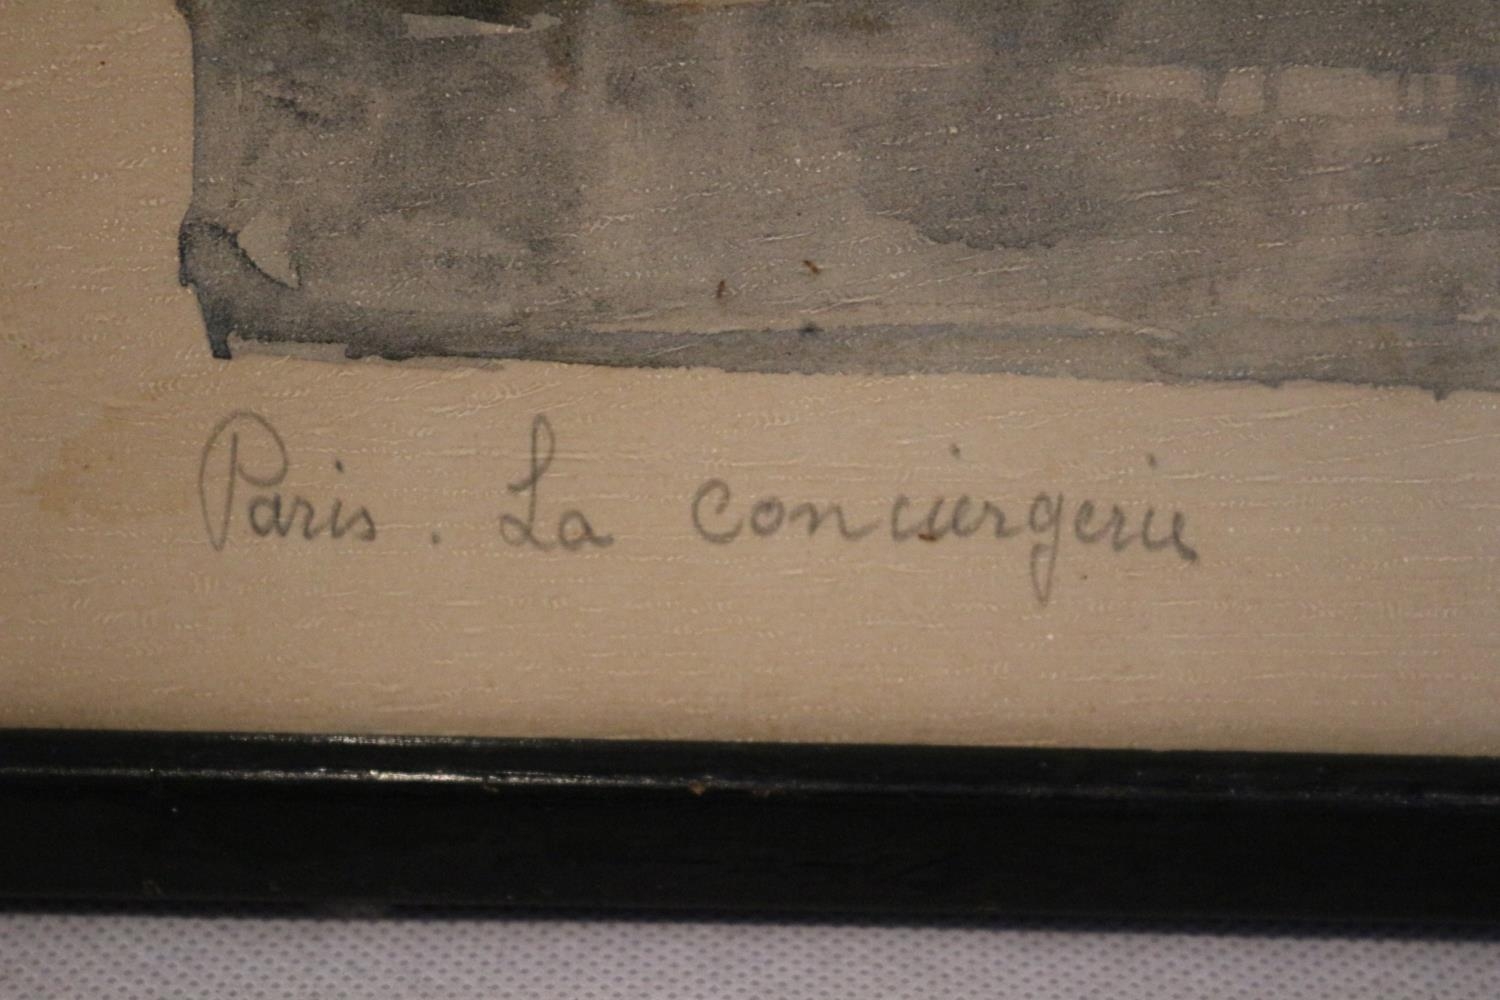 Paris. La conciergerie